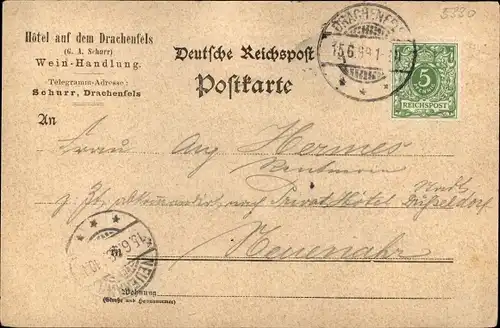 5330
Hôtel auf dem Drachenfels
(G. A. Schurr)
Wein-Handlung.
Telegramm-Adresse:
Schurr, Drachenfels
Deutsche Reichspost
Postkarte
DRACHENFELS
15.6.
5
PFENNIG
REICHSPOST
An
Frau Aug Hermes
Rentnerin
z. Zt. nach Privat Hôtel Stadt Düsseldorf
in Neuenahr
Wohnung
(Straße und Hausnummer)
15.6.